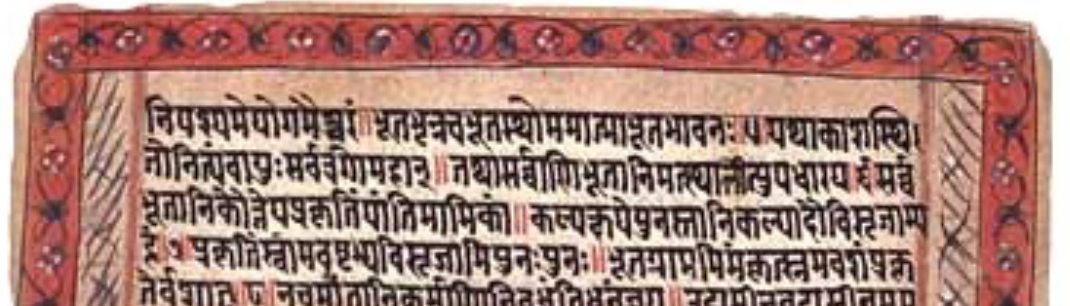 निपश्यमेयोगमैश्वरं॥भूतभृन्नचभूतस्थोममात्माभूतभावनः५यथाकाशस्थि
तोनित्यंवायुःसर्वत्रगोमहान्॥तथासर्वाणिभूतानिमत्स्थानीत्युपधारय६सर्व
भूतानिकौंतेयप्रकृतिंयांतिमामिकां॥कल्पक्षयेपुनस्तानिकल्पादौविसृजाम्य
हं७प्रकृतिंस्वामवष्टभ्यविसृजामिपुनःपुनः॥भूतग्राममिमंकृत्स्नमवशंप्रकृ
तेर्वशात्८नचमांतानिकर्माणिनिबध्नंतिधनंजय॥